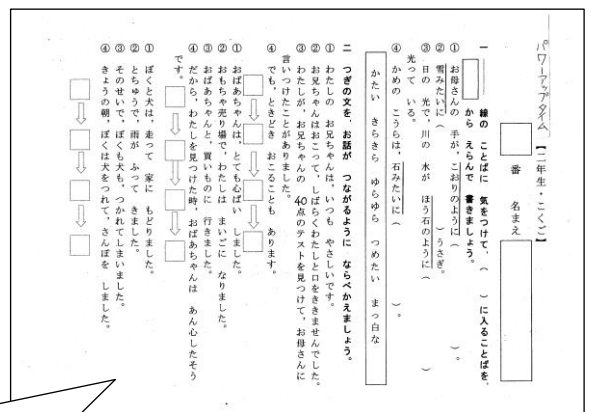 パワーアップタイム 【二年生・こくご】
番 名まえ
一 線の ことばに 気をつけて、( )に入ることばを
から えらんで 書きましょう。
① お母さんの 手が、こおりのように( )。
② 雪みたいに( )うさぎ。
③ 日の 光で、川の 水が ほう石のように( )
光って いる。
④ かめの こうらは、石みたいに( )。
かたい きらきら ゆらゆら つめたい まっ白な
二 つぎの文を、お話が つながるように ならべかえましょう。
① わたしの お兄ちゃんは、いつも やさしいです。
② お兄ちゃんはおこって、しばらくわたしと口をききませんでした。
③ わたしが、お兄ちゃんの 40点のテストを見つけて、お母さんに
言いつけたことがありました。
④ でも、ときどき おこることも あります。
① おばあちゃんは、とても心ぱい しました。
② おもちゃ売り場で、わたしは まいごに なりました。
③ おばあちゃんと、買いものに 行きました。
④ だから、わたしを見つけた時、おばあちゃんは あん心したそう
です。
① ぼくと犬は、走って 家に もどりました。
② とちゅうで、雨が ふって きました。
③ そのせいで、ぼくも犬も、つかれてしまいました。
④ きょうの朝、ぼくは犬をつれて、さんぽを しました。